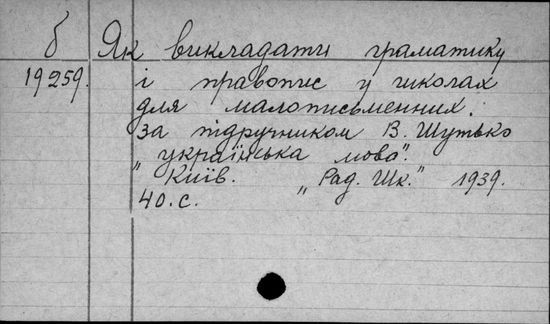 б Як викладати граматику
19259. і правопис у школах
для малописьменних.
за підручником В. Шутько
"українська мова".
Київ. "Рад. Шк." 1939.
40.с.